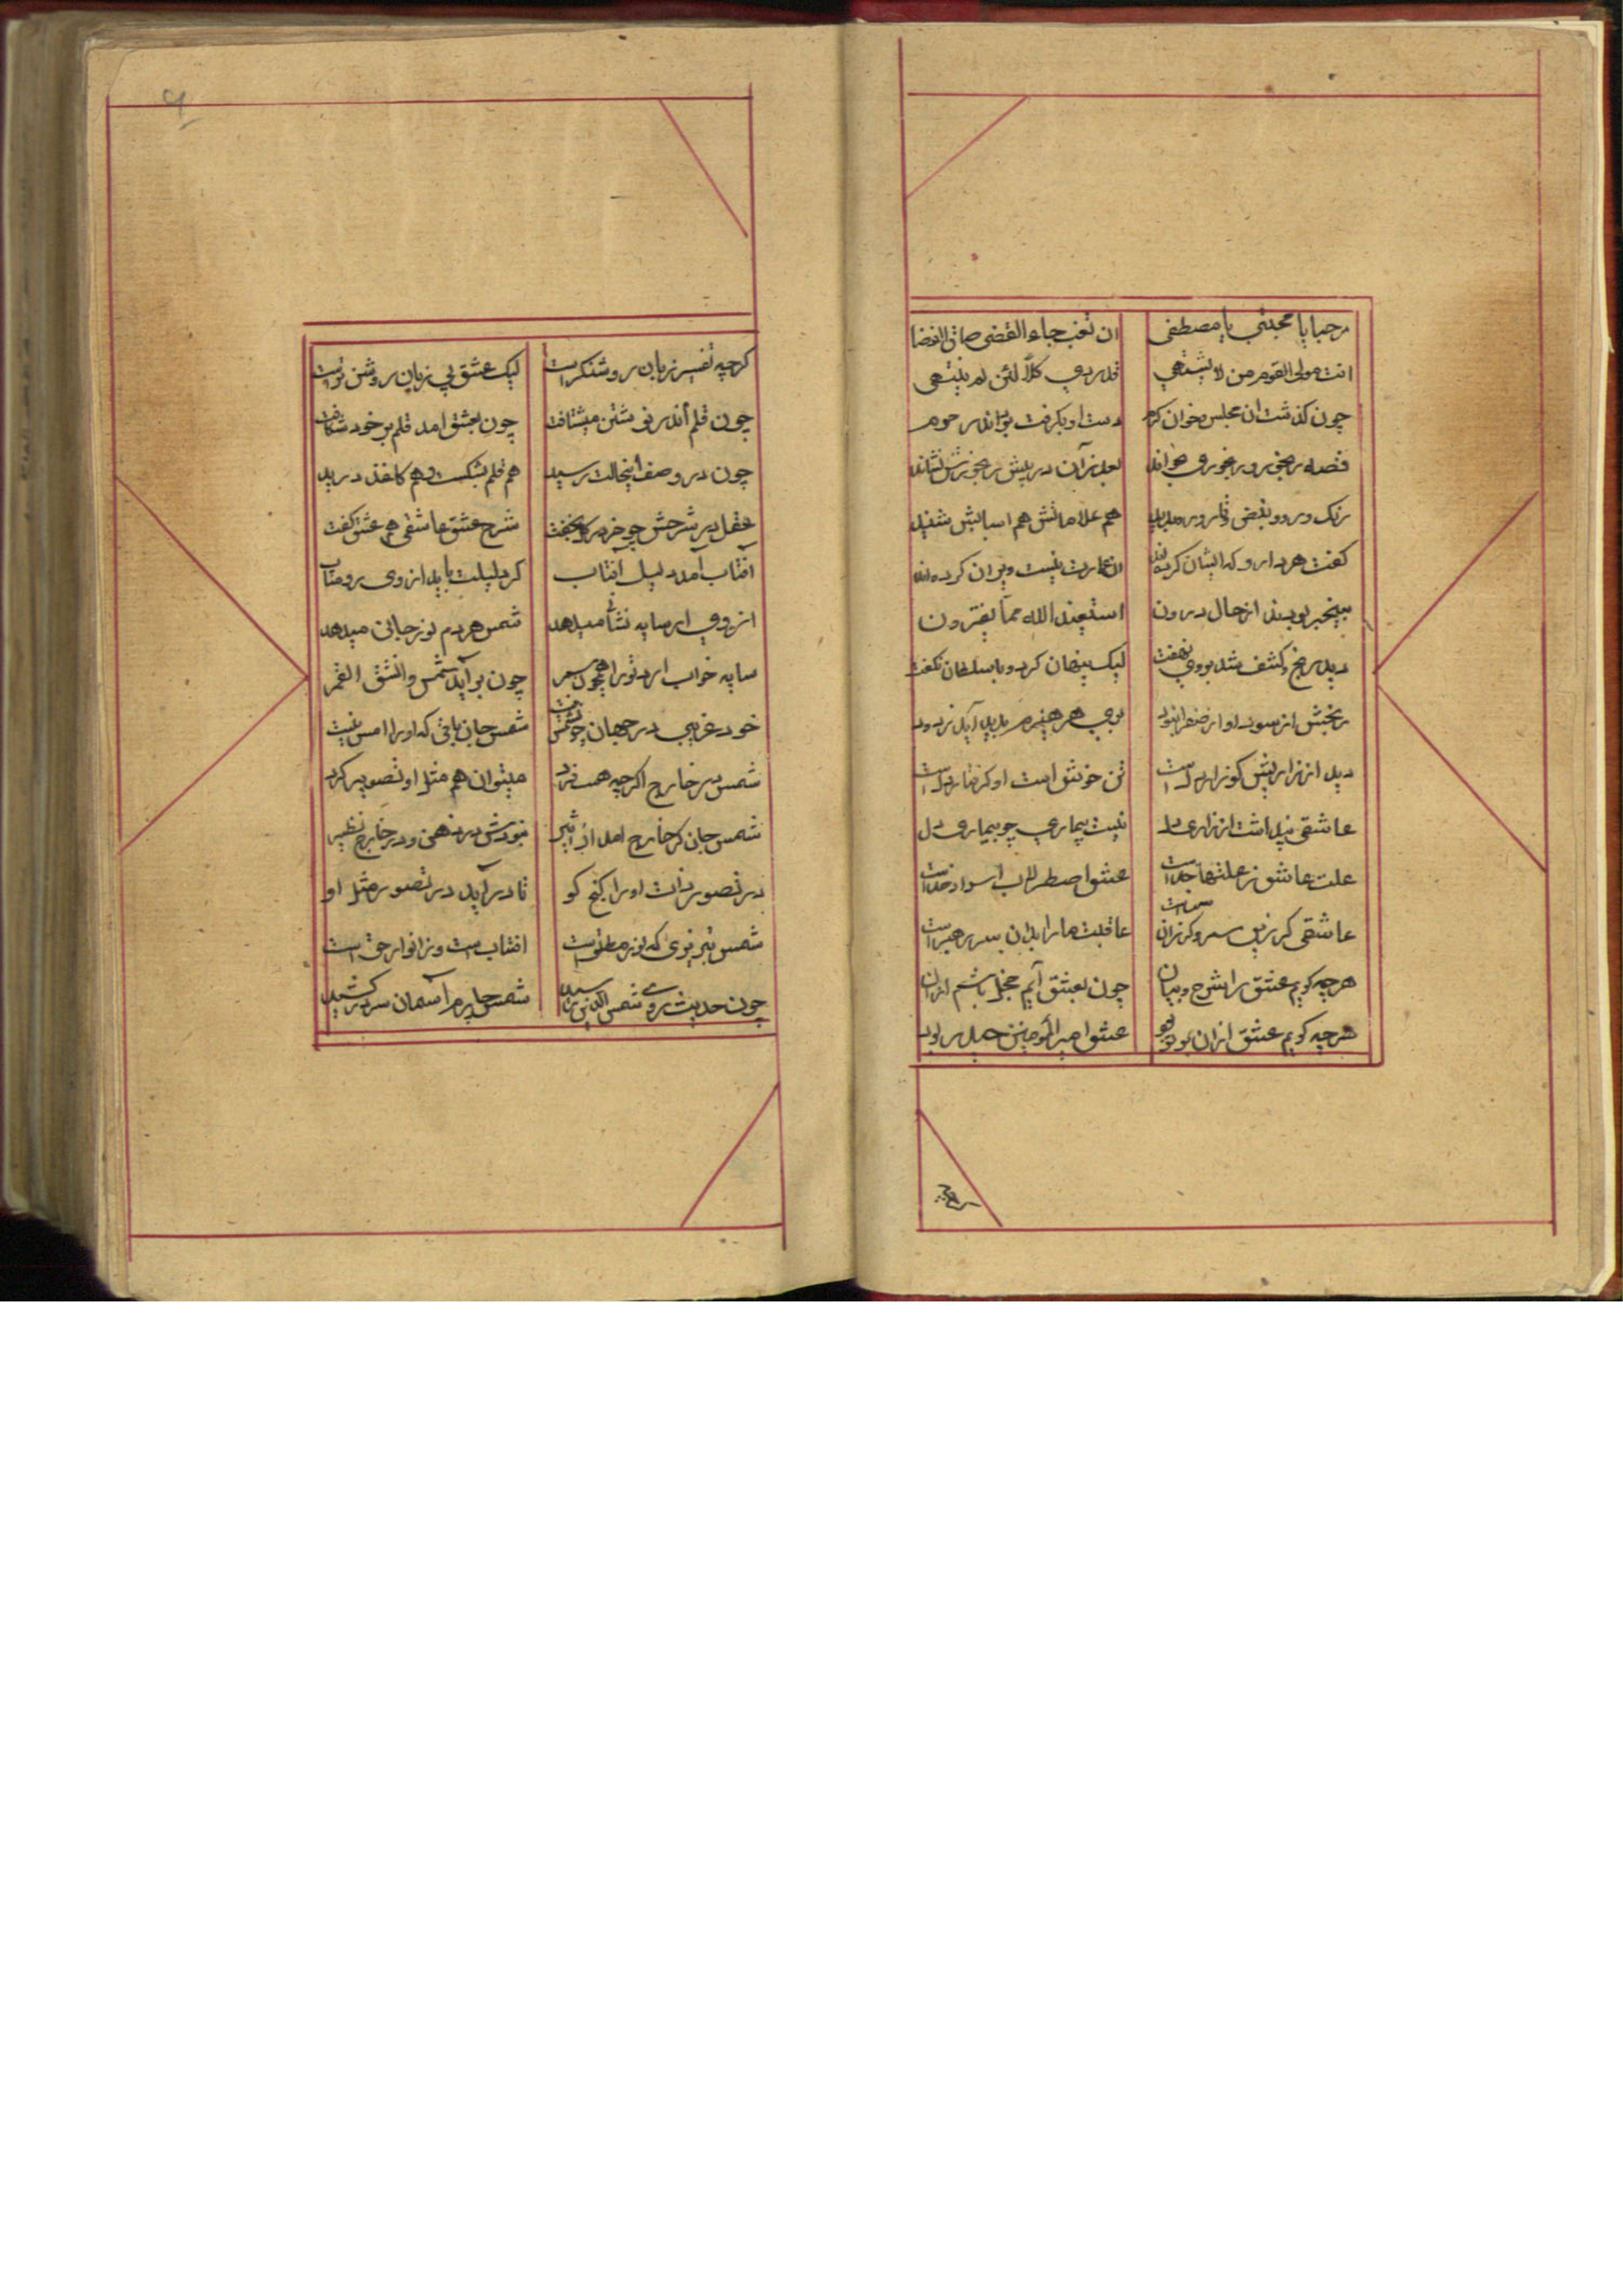 مرحبا یا مجتبی یا مصطفی ان تغب جاء القضی ضاق الفضا
انت مولی القوم من لا یشتهی قد ردی کلّا لئن لم ینتهی
چون کذشت ان مجلس و خوان کرم دست او بکرفت برد اندر حرم
قصه رنجور و رنجوری بخواند بعد ازآن در پیش رنجورش نشاند
رنک و رو و نبض و قاروره بدید هم علاماتش هم اسبابش شنید
کفت هر دارو که ایشان کرده‌اند ان عمارت نیست ویران کرده‌اند
بیخبر بودند از حال درون استعیذ الله مما یفترون
دید رنج و کشف شد بروی نهفت لیک پنهان کرد و با سلطان نکفت
رنجش از سودا و از صفرا نبود بوی هر هیزم پدید آید ز دود
دید از زاریش کو زار دلست تن خوش است او کرفتار دلست
عاشقی پیداست از زاری دل نیست بیماری چو بیماری دل
علت عاشق ز علتها جداست عشق اصطرلاب اسرار خداست
عاشقی کر زین سر و کر زان سرست عاقبت ما را بدان سر رهبر است
هرچه کویم عشق را شرح و بیان چون بعشق آیم خجل باشم از ان
هرچه کویم عشق ازان برتر بود عشق امیر المومنین حیدر بود
۹
کرچه تفسیر زبان روشنکراست لیک عشق بی زبان روشن تراست
چون قلم اندر نوشتن میشتافت چون بعشق امد قلم بر خود شکافت
چون در وصف اینحالت رسید هم قلم بشکست و هم کاغذ درید
عقل در شرحش چو خر در کل بخفت شرح عشق عاشقی هم عشق کفت
آفتاب آمد دلیل آفتاب کر دلیلت باید از وی رو متاب
از وی ار سایه نشانی میدهد شمس هردم نور جانی میدهد
سایه خواب ارد ترا همچون سمر چون برآید شمس وانشق القمر
خود غریبی در جهان چون شمس نیست شمس جان باقی که اورا امس نیست
شمس در خارج اکرچه هست فرد میتوان هم مثل او تصویر کرد
شمس جان کو خارج امد از اثیر نبودش در ذهن و در خارج نظیر
در تصور ذات اورا کنج کو تا درآید در تصور مثل او
شمس تبریزی که نور مطلق است افتاب است و ز انوار حق است
چون حدیث روی شمس الدین رسید شمس چارم آسمان سر در کشید